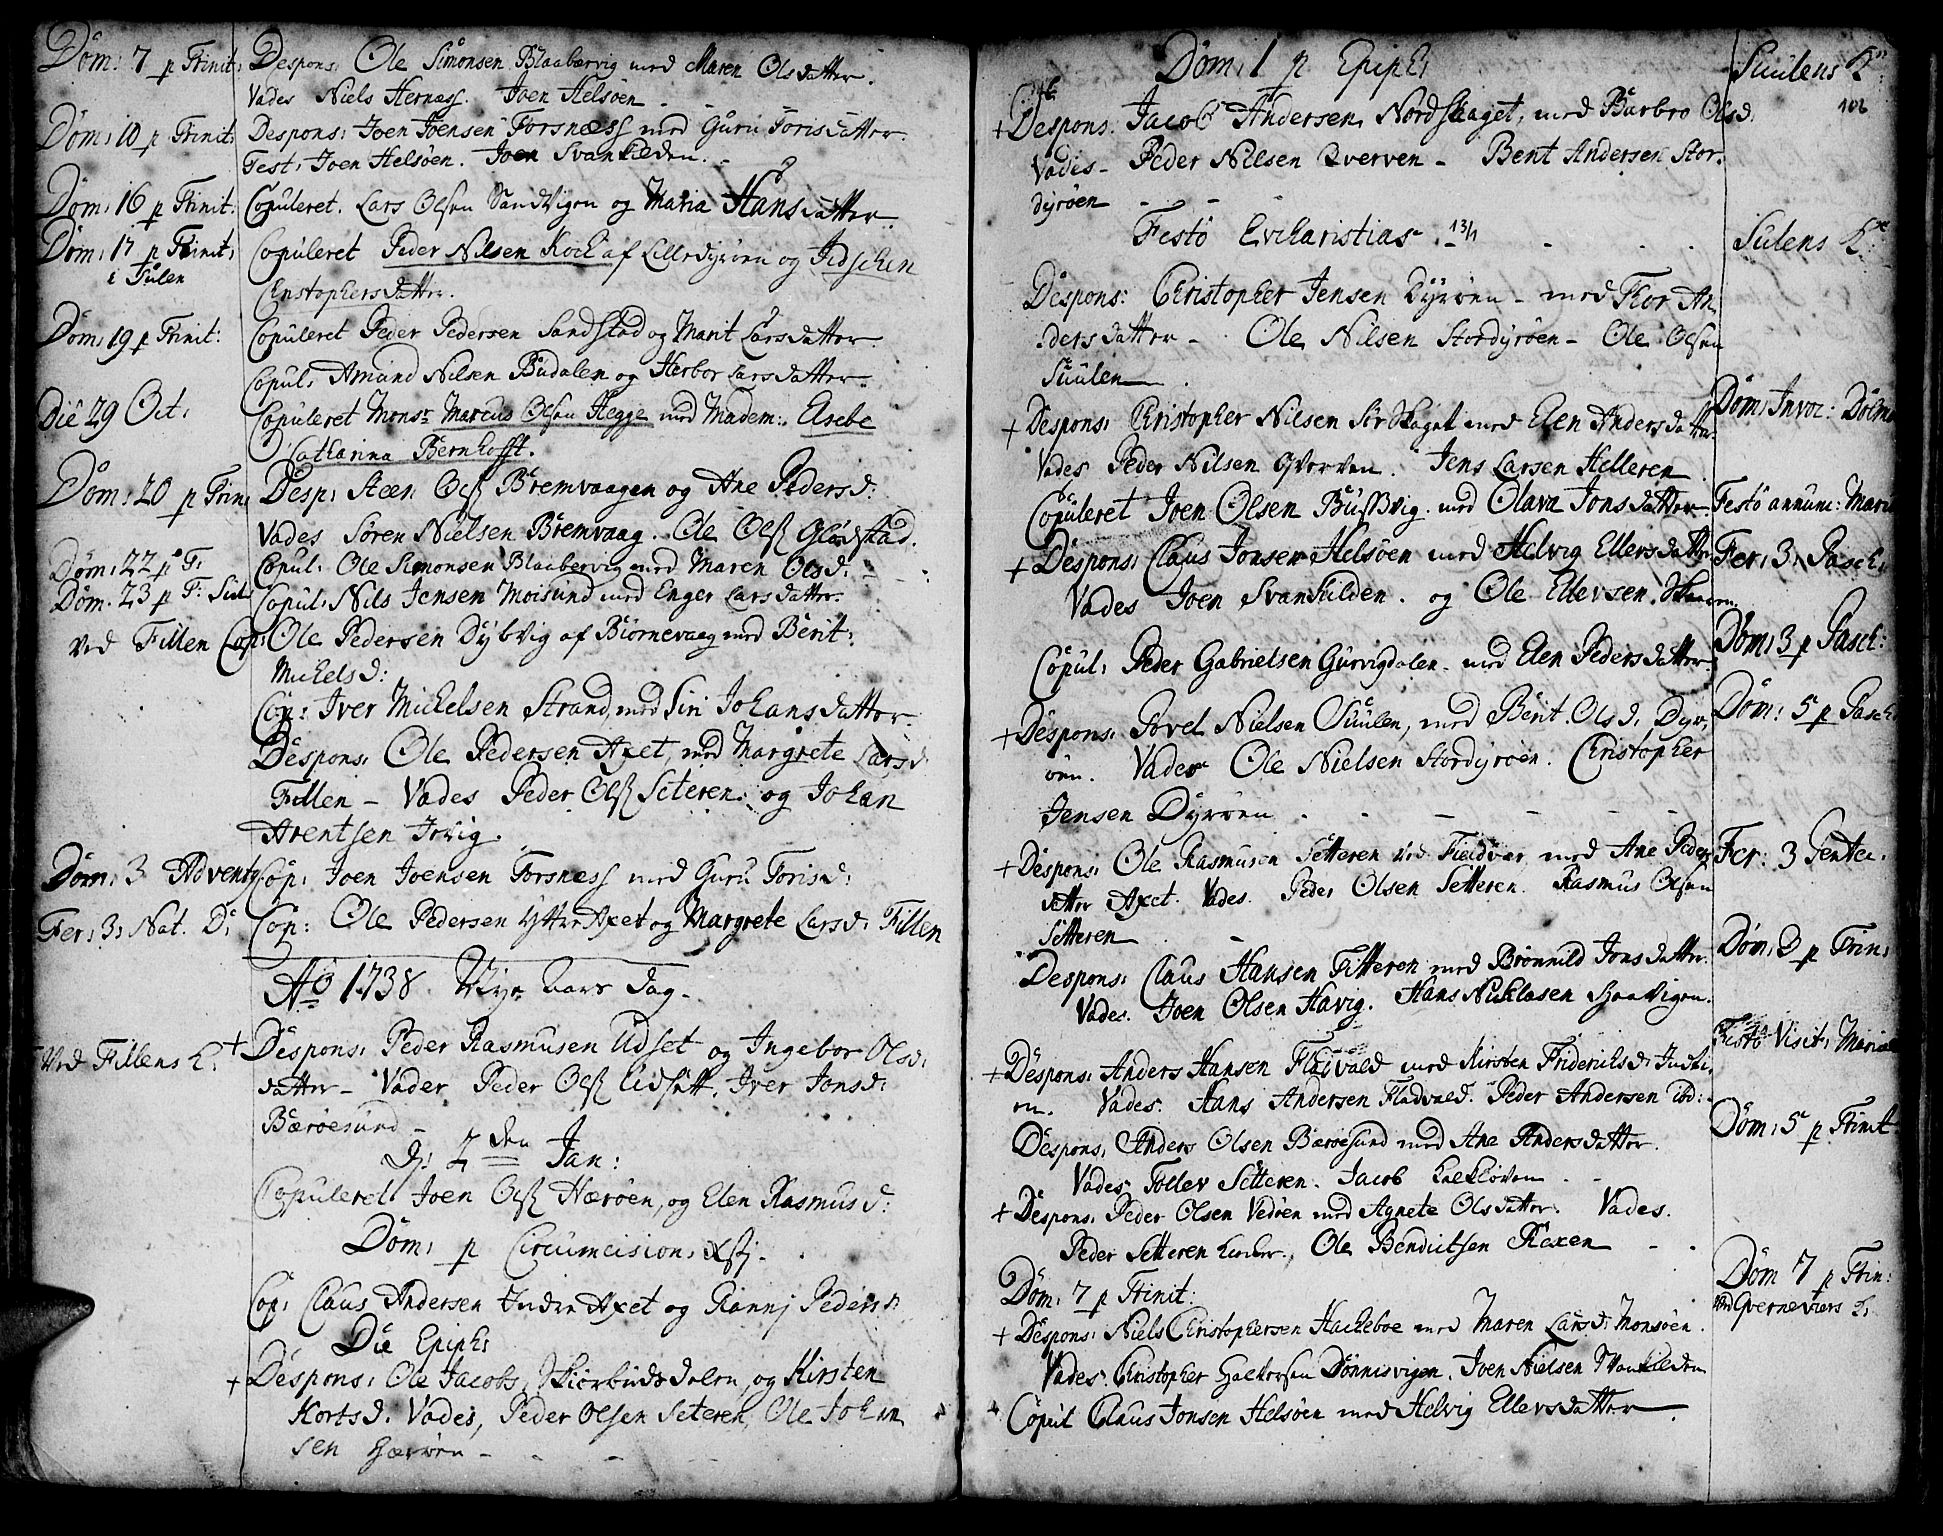 Dom: 7 p Trinit: Despons: Ole Simonsen Blaabærvig med Maren Olsdatter.
Vades Niels Hernæss. Joen Helsöen
Dom: 10 p Trinit: Despons: Joen Joensen Forsness med Guru Torisdatter.
Test: Joen Helsöen. Joen Svankilden.
Dom: 16 p Trinit: Copuleret. Lars Olsen Sandvigen og Maria Hansdatter.
Dom: 17 p Trinit: Copuleret Peder Nilsen Kock af Lilledyröen og Idschen
i Sulen
Christophersdatter.
Dom: 19 p Trinit: Copuleret Peder Pedersen Sandstad og Marit Larsdatter.
Copul: Amund Nilsen Budalen og Herbor Larsdatter.
Die 29 Oct: Copuleret Monsr Marcus Olsen Hegge med Madem: Elsebe
Catharina Bernhofft.
Dom: 20 p Trin: Desp: Steen Ols: Bremvaagen og Ane Pedersd:
Vades Sören Nielsen Bremvaag. Ole Ols: Glödstad.
Dom: 22 p T. Copul: Ole Simonsen Blaabervig med Maren Olsd:
Dom. 23 p T: Copul: Nils Jensen Moisund med Enger Larsdatter
Ved Fillen Cop: Ole Pedersen Dybvig af Biörnevaag med Berit
Mickelsd:
Cop: Iver Mickelsen Strand, med Siri Johansdatter
Despons: Ole Pedersen Axet, med Margrete Larsd
Fillen - Vades Peder Ols: Seteren og Johan
Arentsen Irvig.
Dom: 3 Advent Cop: Joen Joensen Forsness med Guru Torisd:
Fer: 3: Nat. D: Cop: Ole Pedersen Ytter Axet og Margrete Larsd: Fillen
Ao 1738 Nye Aars Dag.
Ved Fillens K: + Despons: Peder Rasmusen Udset og Ingebor Ols
datter - Vader Peder Ols: Udsett. Iver Jonsd:
Bæröesund
d: 2den Jan:
Copuleret Joen Ols: Hæröen, og Elen Rasmusd:
Dom: p Circumcision: Xsti.
Cop: Claus Andersen Indre Axet og Ranni Pedersd
Die Epiph:
+ Despons: Ole Jacobs: Skiorbudsdalen og Kirsten
Kortsd. Vades, Peder Olsen Seteren, Ole Johan
sen
Dom: 1 p Epiph: Suulens K:
102
+ Despons. Jacob Andersen Nordskaget, med Barbro Olsd.
Vades - Peder Nilsen Qverven - Bent Andersen Stor
dyröen
Festo Eucharistias 13/1 Sulens K:
Despons: Christopher Jensen Dyröen - med Thor An
dersdatter - Ole Nilsen Stordyröen - Ole Olsen
Suulen
+ Despons: Christopher Nilsen Sörskaget med Elen Andersdatter Dom: Invoc: Dolm
Vades Peder Nilsen Qverven. Jens Larsen Helleren
Copuleret Joen Olsen Bussvig med Olava Jonsdatter. Festo annunc: Mariæ
+ Despons: Claus Jonsen Helsöen med Helvig Ellersdatter Fer: 3: Pasch:
Vades Joen Svankilden. og Ole Ellevsen
Copul: Peder Gabrielsen Gurvigdalen med Elen Pedersdatter Dom: 3 p Pasch:
+ Despons: Povel Nielsen Suulen, med Berit Olsd: Dyr- Dom: 5 p Pasch:
öen. Vades Ole Nielsen Stordyröen. Christopher
Jensen Dyröen
+ Despons: Ole Rasmusen Setteren ved Fieldvær med Ane Peders Fer: 3 Pentec.
datter Axet. Vades. Peder Olsen Setteren. Rasmus Olsen
Setteren
Despons: Claus Hansen Titteren med Brönnild Jonsdatter. Dom: 3 p Trin:
Vades. Joen Olsen Havig. Hans Nicklasen
+ Despons: Anders Hansen Fladvald med Kirsten Friderichsd: Festo Visit: Mariæ
Vades. Hans Andersen Fladvald. Peder Andersen ibd:
Despons: Anders Olsen Bærøesund med Ane Andersdatter. Dom: 5 p Trinit
Vades Tollev Setteren. Jacob
+ Despons: Peder Olsen Vedöen med Agnete Olsdatter. Vades.
Peder Setteren, Ole Bendictsen Raxen
Dom: 7 p Trinit: Dom 7 p Trin:
+ Despons: Niels Christophersen Hackeboe med Maren Larsd: Monsöen. Ved K:
Vades. Christopher Dönnisvigen. Joen Nielsen Svankilden
Copul Claus Jonsen Helsöen med Helvig Ellersdatter.